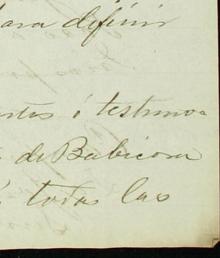 para definir
i testimo-
de Babicora
todas las